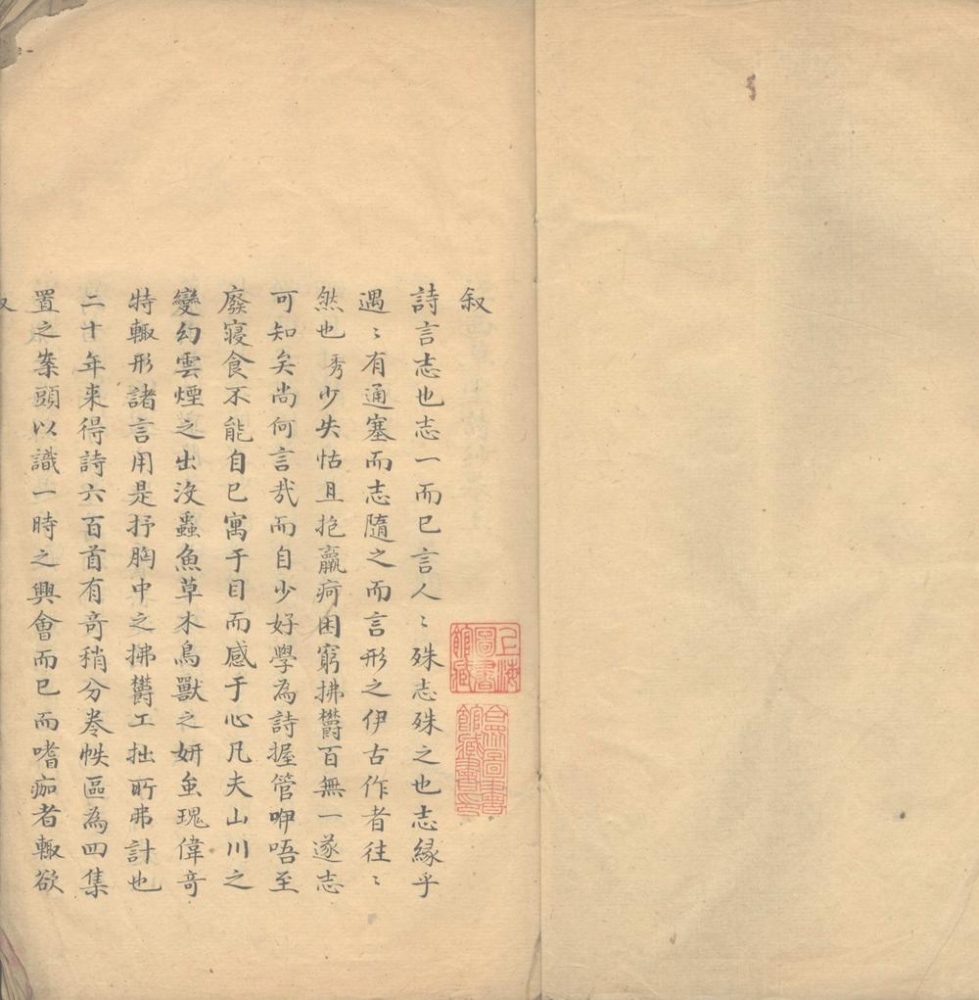 叙
詩言志也志一而已言人〻殊志殊之也志緣乎
遇〻有通塞而志隨之而言形之伊古作者往〻
然也秀少失怙且抱羸疴困窮拂欝百無一遂志
可知矣尚何言㢤而自少好學為詩握管咿唔至
廢寝食不能自已寓于目而感于心凡夫山川之
變幻雲煙之出沒蟲魚草木鳥獸之妍蚩瑰偉奇
特輙形諸言用是抒胸中之拂欝工拙所弗計也
二十年来得詩六百首有奇稍分卷帙區為四集
置之案頭以識一時之興會而已而嗜痂者輙欲
上海圖書館藏
合眾圖書館藏書印